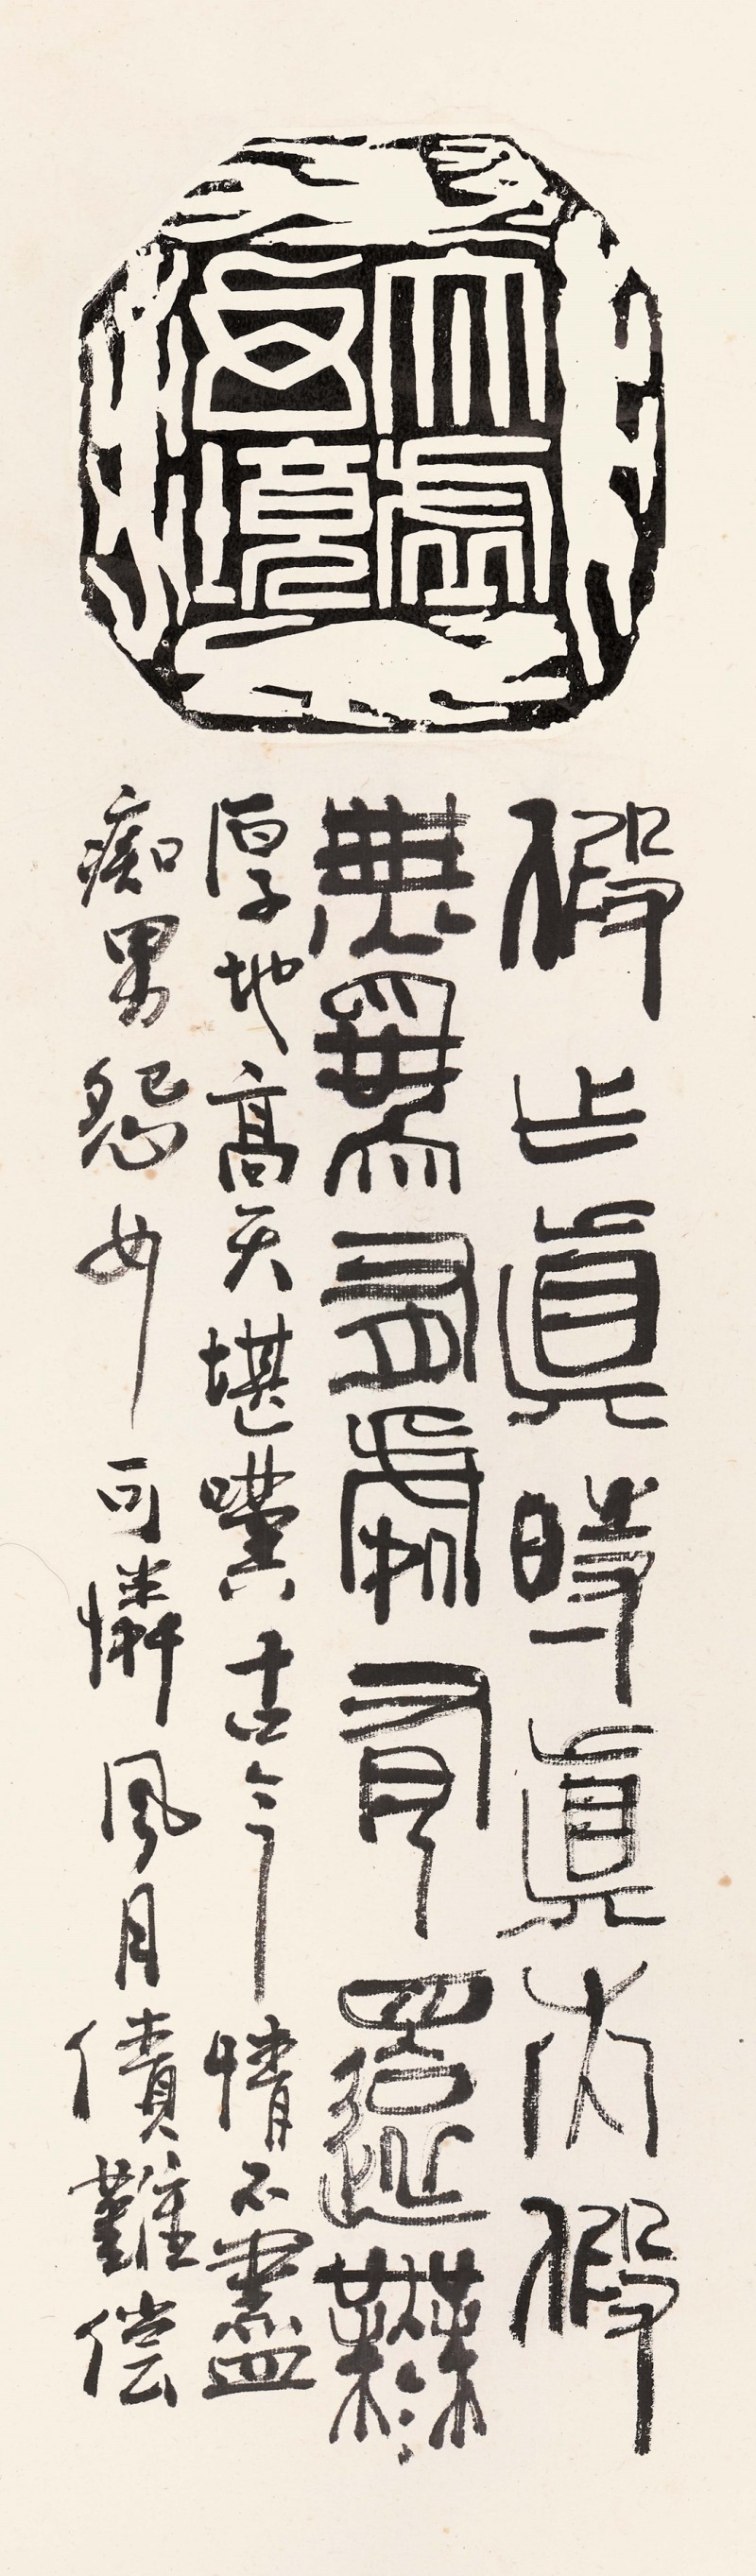 太虛幻境
假乍真時真亦假
無為有處有還無
厚地高天堪嘆古今情不盡
痴男怨女可憐風月債難偿